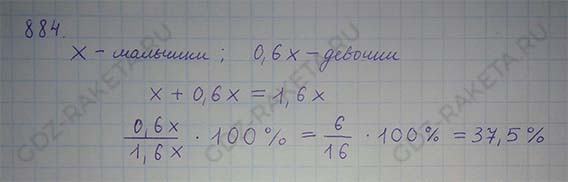 884.
x - мальчики; 0,6x - девочки
x + 0,6x = 1,6x
0,6x/1,6x · 100% = 6/16 · 100% = 37,5%
GDZ-RAKETA.RU
GDZ-RAKETA.RU
GDZ-RAKETA.RU